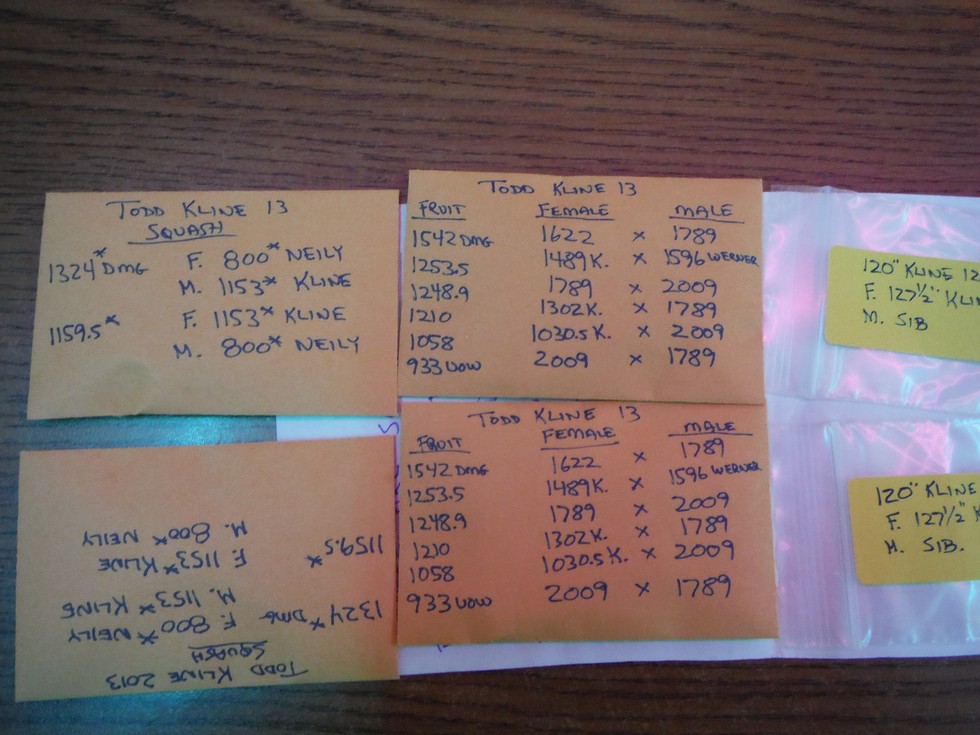 TODD KLINE 13
SQUASH
1324* DMG F. 800* NEILY
M. 1153* KLINE
1159.5* F. 1153* KLINE
M. 800* NEILY
TODD KLINE 13
FRUIT FEMALE MALE
1542 DMG 1622 x 1789
1253.5 1489K. x 1596 WERNER
1248.9 1789 x 2009
1210 1302K. x 1789
1058 1030.5K. x 2009
933 UOW 2009 x 1789
120" KLINE 12
F. 127½" KLI
M. SIB
TODD KLINE 2013
SQUASH
1324* DMG F. 800* NEILY
M. 1153* KLINE
1159.5* F. 1153* KLINE
M. 800* NEILY
TODD KLINE 13
FRUIT FEMALE MALE
1542 DMG 1622 x 1789
1253.5 1489K. x 1596 WERNER
1248.9 1789 x 2009
1210 1302K. x 1789
1058 1030.5K. x 2009
933 UOW 2009 x 1789
120" KLINE
F. 127½"
M. SIB.